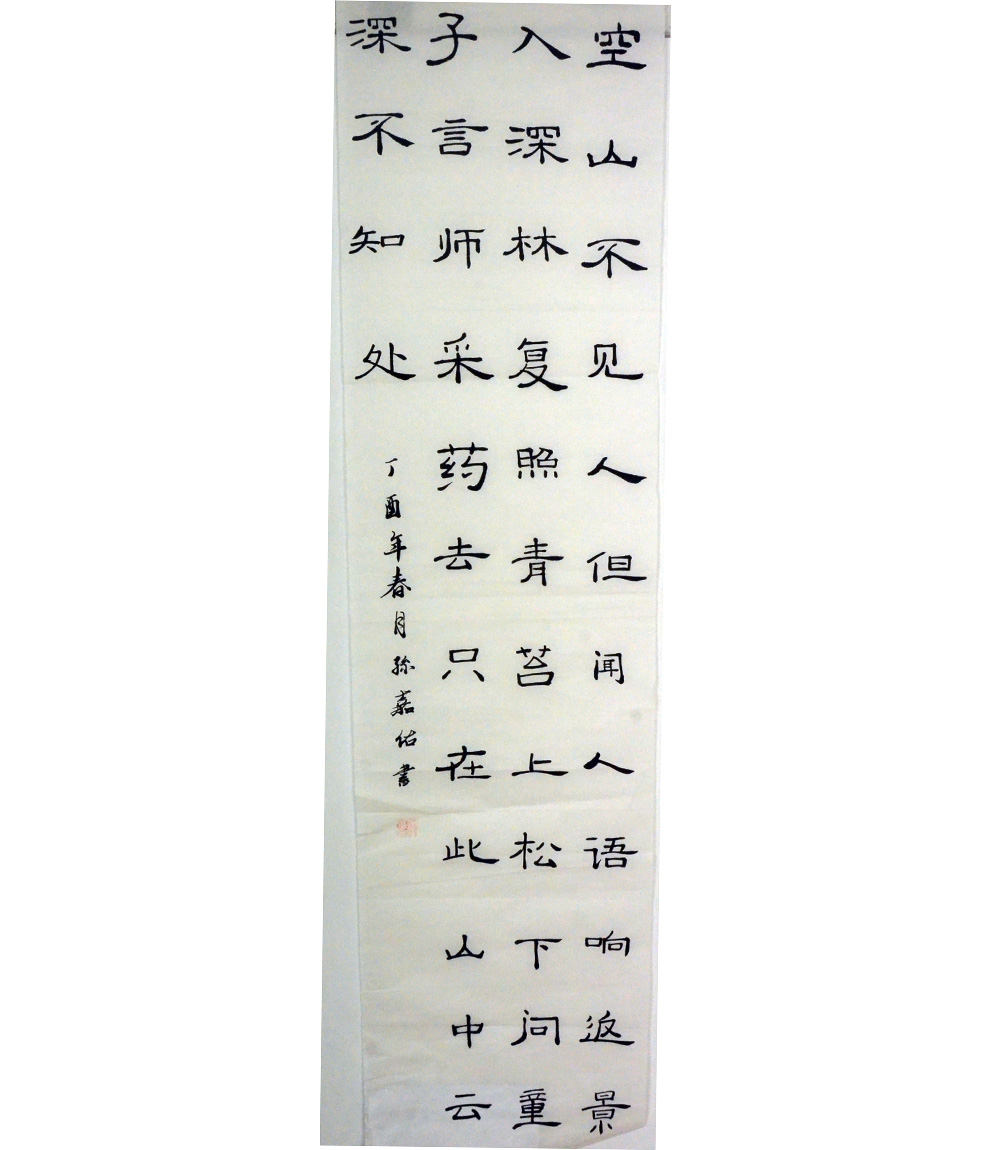 空山不见人但闻人语响返景
入深林复照青苔上松下问童
子言师采药去只在此山中云
深不知处
丁酉年春月孫嘉佑書